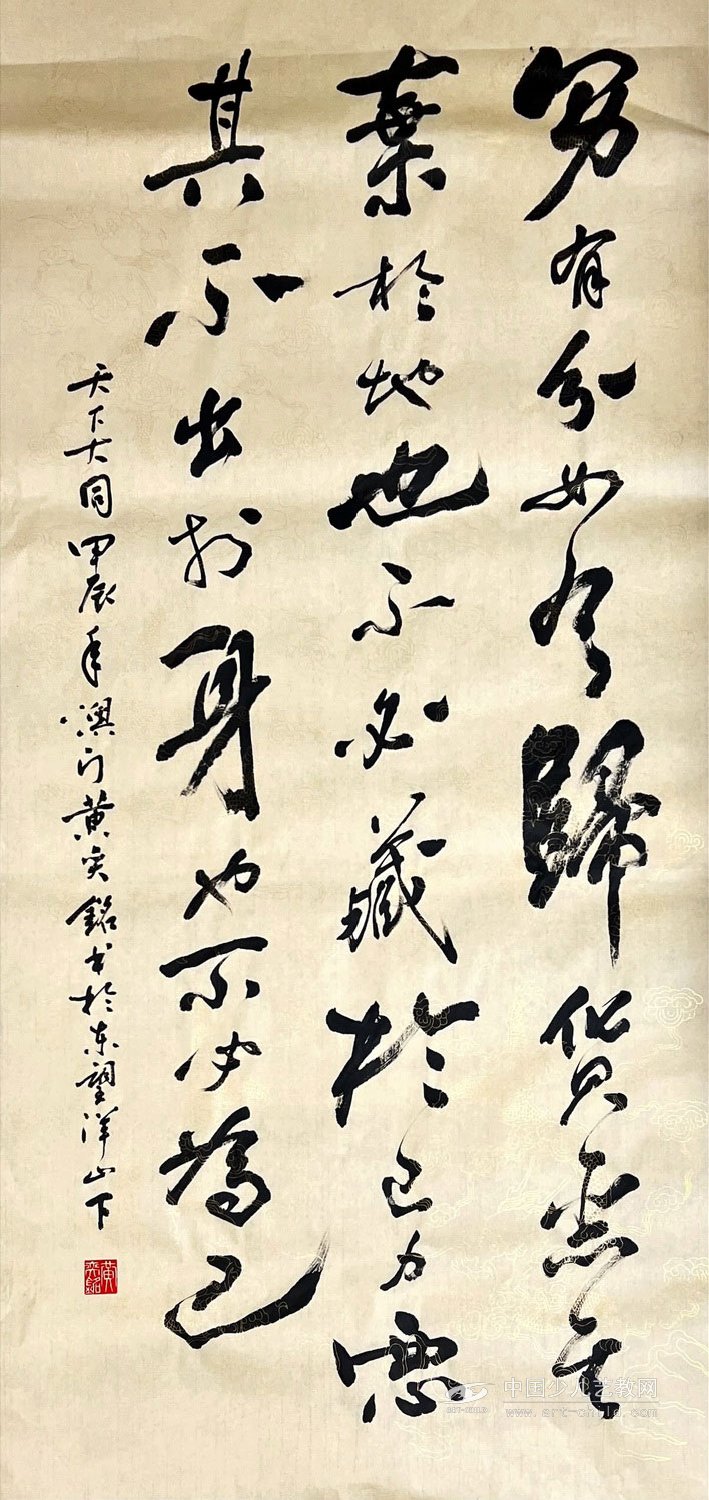 男有分女有歸貨惡其
棄於地也不必藏於己力惡
其不出於身也不必為己
天下大同甲辰年澳门黄奕銘书於东望洋山下
黄奕銘
中国少儿艺教网
www.art-child.com